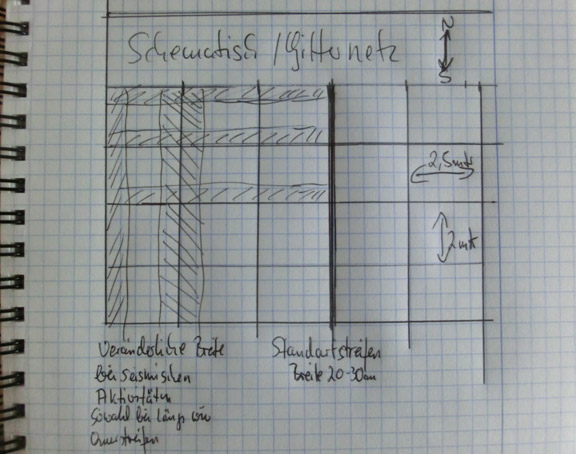 Schematisch / Gitternetz
N
S
2,5 mtr
2 mtr
Veränderliche Breite
bei seismischen
Aktivitäten
Sowohl bei Längs wie
Querstreifen
Standartstreifen
Breite 20-30cm